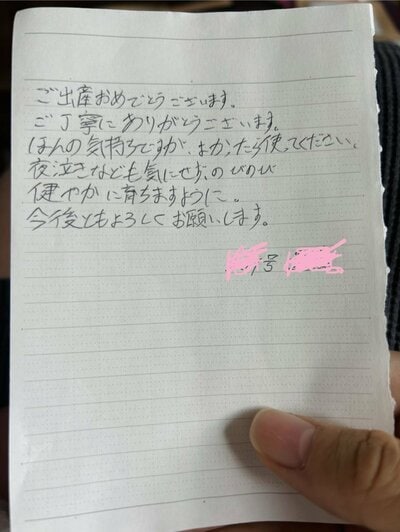 ご出産おめでとうございます。
ご丁寧にありがとうございます。
ほんの気持ちですが、よかったら使ってください。
夜泣きなども気にせず、のびのび
健やかに育ちますように。
今後ともよろしくお願いします。
号